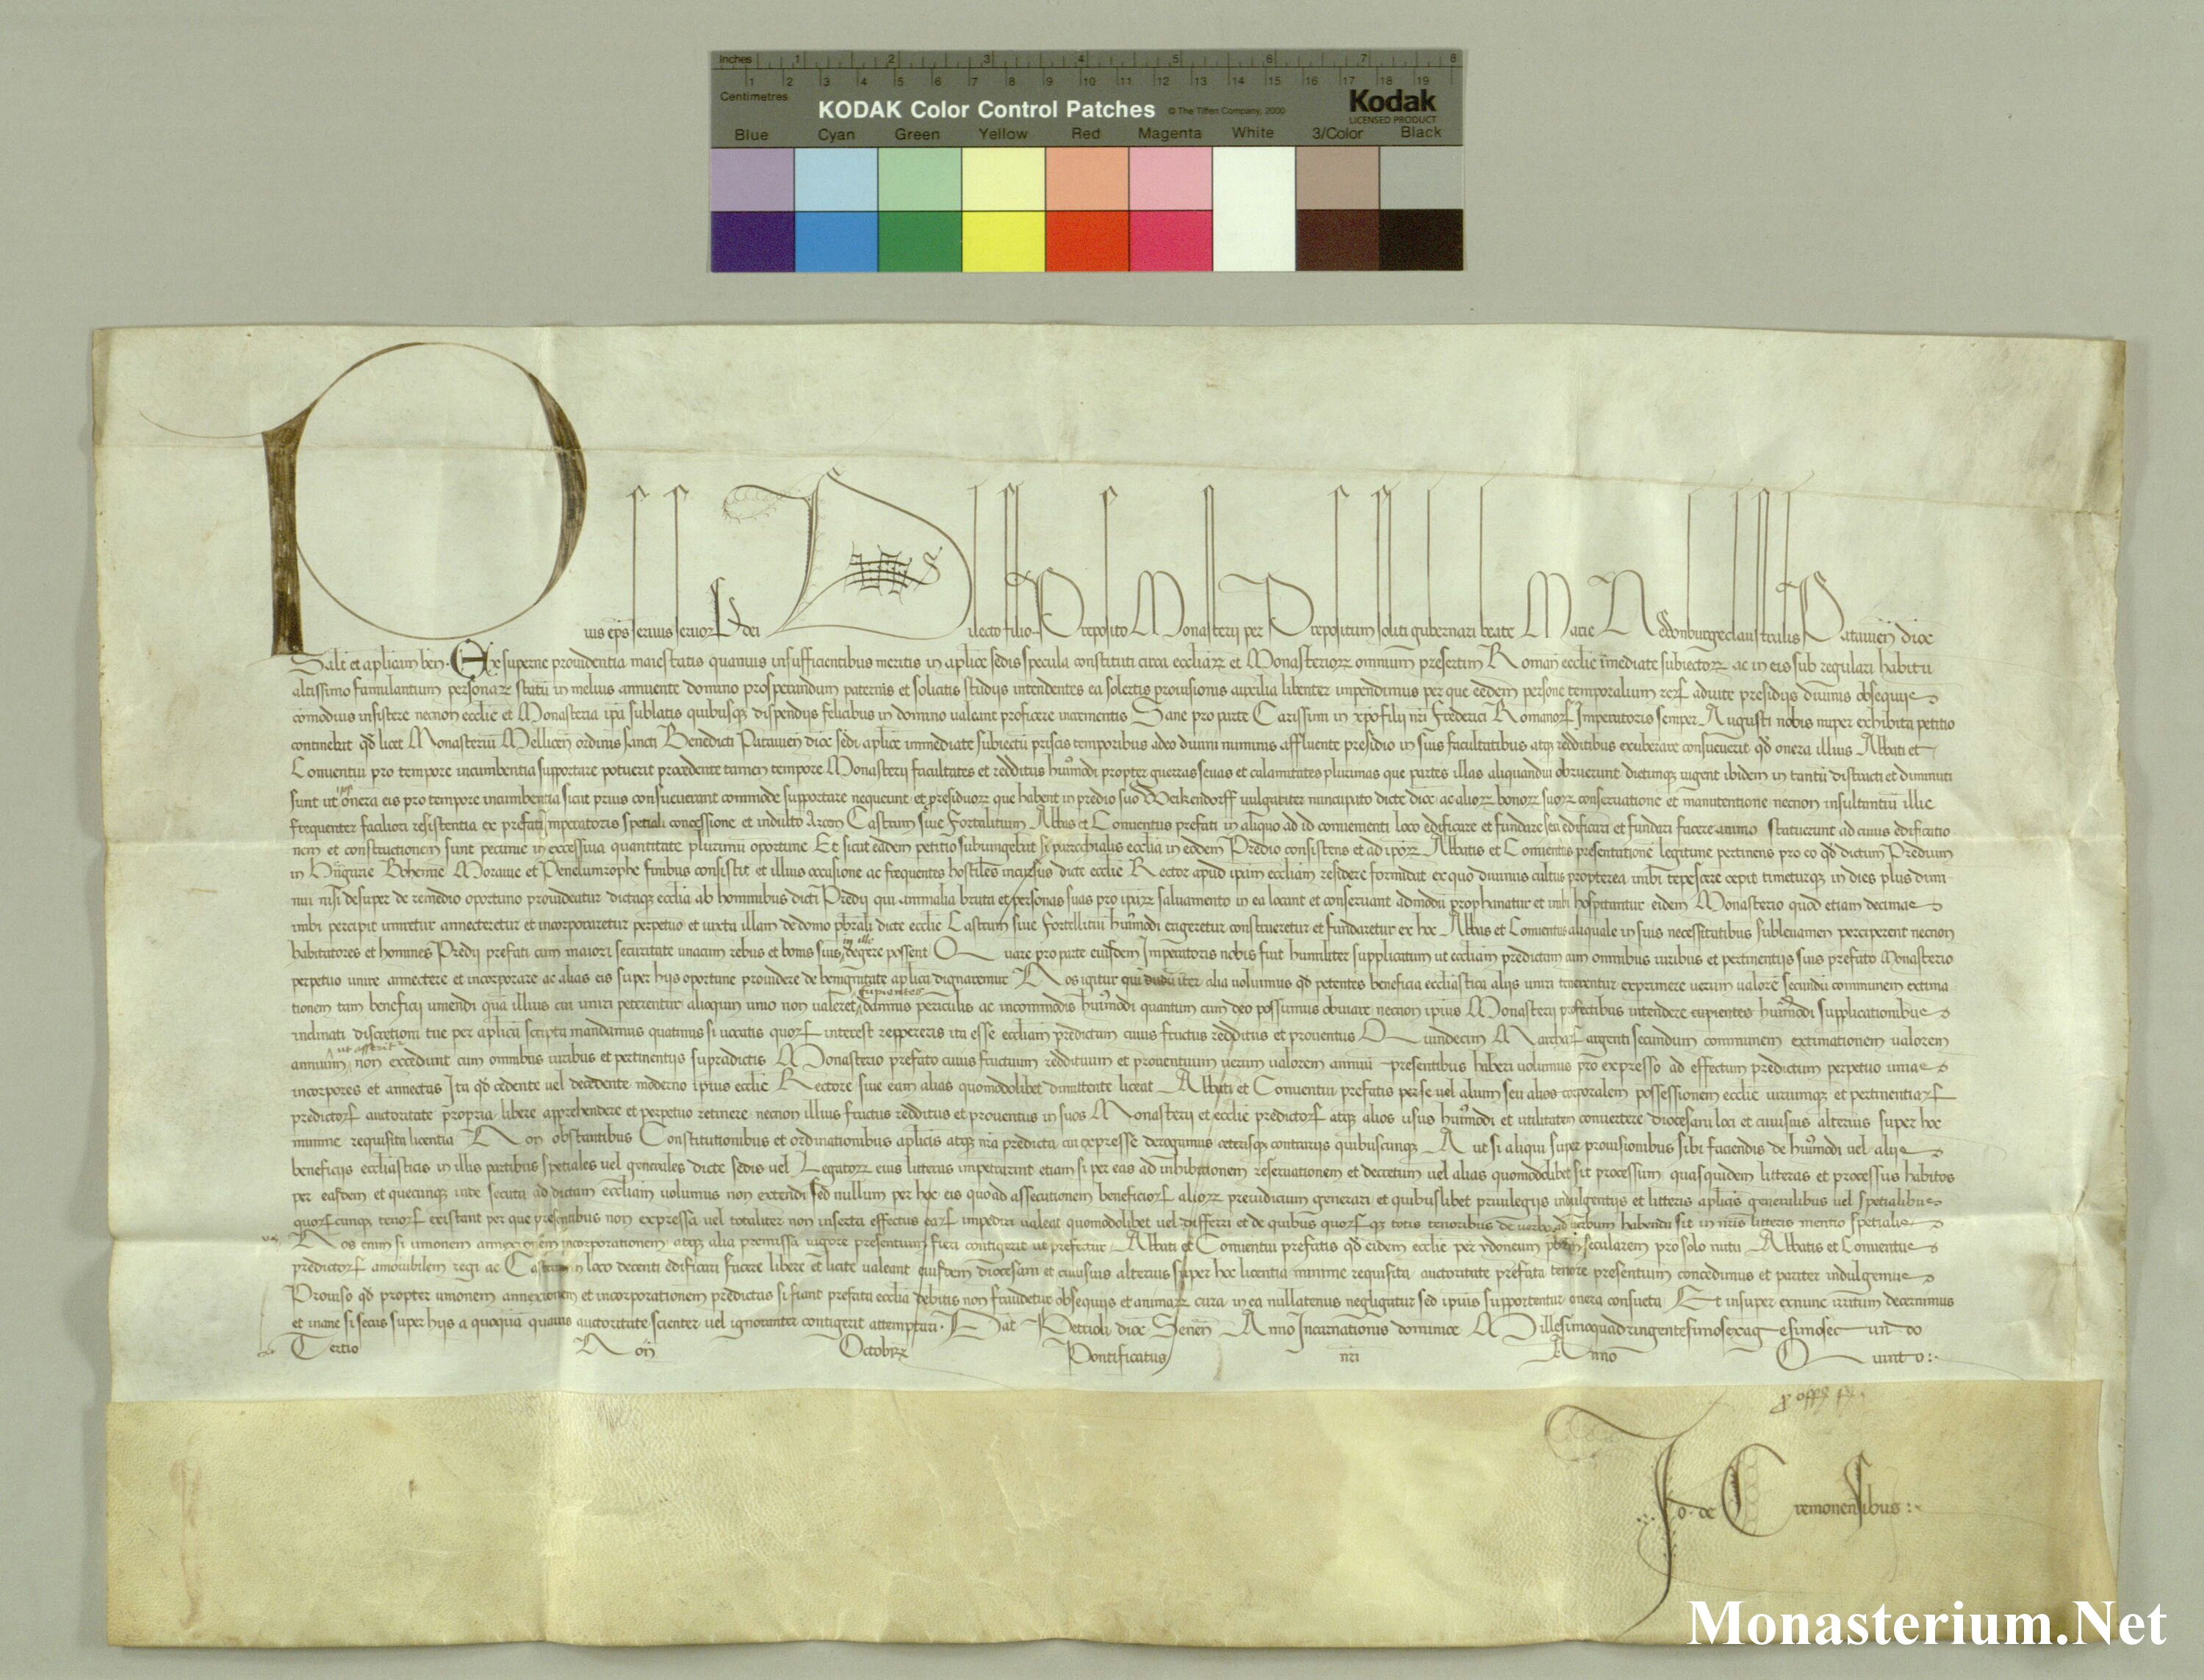 Inches 1 2 3 4 5 6 7 8
1 2 3 4 5 6 7 8 9 10 11 12 13 14 15 16 17 18 19
Centimetres
KODAK Color Control Patches © The Tiffen Company, 2000 Kodak
LICENSED PRODUCT
Blue Cyan Green Yellow Red Magenta White 3/Color Black
Pius eps servus servor dei Dilecto filio Preposito Monasterij per Prepositum soliti gubernari beate Marie Newnburgeclaustralis Patavien dioc
Salt et aplicam ben. Ex superne providentia maiestatis quamvis insufficientibus meritis in aplice sedis specula constituti circa eccliarr et Monasteriorr omnium presertim Roman ecclie imediate subiectorr ac in eis sub regulari habitu
altissimo famulantium personarr statu in melius annuente domino prosperandum paternis et solicitis studijs intendentes ea solertis provisionis auxilia libenter impendimus per que eedem persone temporalium rer adiute presidijs divinis obsequijs
comodius insistere necnon ecclie et Monasteria ipa sublatis quibusq dispendijs felicibus in domino valeant proficere incrementis Sane pro parte Carissimi in xpo filij nri Frederici Romanor Imperatoris semper Augusti nobis nuper exhibita petitio
continebat qd licet Monasteriu Mellicen ordinis sancti Benedicti Patavien dioc sedi aplice immediate subiectu priscis temporibus adeo divini numinis affluente presidio in suis facultatibus atq redditibus exuberare consueverit qd onera illius Abbati et
Conventui pro tempore incumbentia supportare potuerit procedente tamen tempore Monasterij facultates et redditus humoi propter guerras sevas et calamitates plurimas que partes illas aliquandiu obruerunt dietimq vigent ibidem in tantu distracti et diminuti
sunt ut ipse onera eis pro tempore incumbentia sicut prius consueverant commode supportare nequeunt et presiduorr que habent in predio suo Weikendorff vulgariter nuncupato dicte dioc ac aliorr bonorr suorr conservatione et manutentione necnon insultantiu illic
frequenter faciliori resistentia ex prefati Imperatoris speciali concessione et indulto Arcem Castrum sive Fortalitium Abbas et Conventus prefati in aliquo ad id convenienti loco edificare et fundare seu edificari et fundari facere animo statuerunt ad cuius edificatio
nem et constructionem sunt pecunie in excessiva quantitate plurimu oportune Et sicut eadem petitio subiungebat si parrochialis ecclia in eodem Predio consistens et ad iporr Abbatis et Conventus presentatione legitime pertinens pro eo qd dictum Predium
in Hungarie Bohemie Moravie et finibus consistit et illius occasione ac frequentes hostiles incursus dicte ecclie Rector apud ipam eccliam residere formidat ex quo divinus cultus propterea inibi tepescere cepit timeturq in dies plus dimi
nui nisi desuper de remedio oportuno provideatur dictaq ecclia ab hominibus dicti Predij qui animalia bruta et personas suas pro iparr salvamento in ea locant et conservant admodu prophanatur et inibi hospitantur eidem Monasterio quod etiam decimas
inibi percipit uniretur annecteretur et incorporaretur perpetuo et iuxta illam de domo pbrali dicte ecclie Castrum sive Fortellitiu humoi erigeretur construeretur et fundaretur ex hoc Abbas et Conventus aliquale in suis necessitatibus sublevamen perciperent necnon
habitatores et homines Predij prefati cum maiori securitate unacum rebus et bonis suis in illo degere possent Quare pro parte eiusdem Imperatoris nobis fuit humiliter supplicatum ut eccliam predictam cum omnibus iuribus et pertinentijs suis prefato Monasterio
perpetuo unire annectere et incorporare ac alias eis super hijs oportune providere de benignitate aplica dignaremur Nos igitur qui dudu inter alia voluimus qd petentes beneficia ecclesiastica alijs uniri tenerentur exprimere verum valore secundu communem extima
tionem tam beneficij uniendi qua illius cui uniri peterentur alioquin unio non valeret cupientes damnis periculis ac incommodis humoi quantum cum deo possumus obviare necnon ipius Monasterij profectibus intendere cupientes humoi supplicationibus
inclinati discretioni tue per aplica scripta mandamus quatinus si vocatis quor interest reppereris ita esse eccliam predictam cuius fructus redditus et proventus Quindecim Marchar argenti secundum communem extimationem valorem
annuum ut asserit non excedunt cum omnibus iuribus et pertinentijs supradictis Monasterio prefato cuius fructuum reddituum et proventuum verum valorem annuu presentibus haberi volumus pro expresso ad effectum predictum perpetuo unias
incorpores et annectas Ita qd cedente vel decedente moderno ipius ecclie Rectore sive eam alias quomodolibet dimittente liceat Abbati et Conventui prefatis per se vel alium seu alios corporalem possessionem ecclie iurumq et pertinentiar
predictor auctoritate propria libere apprehendere et perpetuo retinere necnon illius fructus redditus et proventus in suos Monasterij et ecclie predictor atq alios usus humoi et utilitatem convertere diocesani loci et cuiusvis alterius super hoc
minime requisita licentia Non obstantibus Constitutionibus et ordinationibus aplicis atq nra predicta cui expresse derogamus ceterisq contrarijs quibuscunq Aut si aliqui super provisionibus sibi faciendis de humoi vel alijs
beneficijs ecclesiasticis in illis partibus speciales vel generales dicte sedis vel Legatorr eius litteras impetrarint etiam si per eas ad inhibitionem reservationem et decretum vel alias quomodolibet sit processum quasquidem litteras et processus habitos
per easdem et quecunq inde secuta ad dictam eccliam volumus non extendi sed nullum per hoc eis quoad assecutionem beneficior aliorr preiudicium generari et quibuslibet privilegijs indulgentijs et litteris aplicis generalibus vel specialibus
quorcunq tenor existant per que presentibus non expressa vel totaliter non inserta effectus ear impediri valeat quomodolibet vel differri et de quibus quorq totis tenoribus de verbo ad verbum habenda sit in nris litteris mentio specialis
Nos enim si unionem annexionem incorporationem atq alia premissa vigore presentium fieri contigerit ut prefertur Abbati et Conventui prefatis qd eidem ecclie per ydoneum pbrm secularem pro solo nutu Abbatis et Conventus
predictor amovibilem regi ac Castrum in loco decenti edificari facere libere et licite valeant eiusdem diocesani et cuiusvis alterius super hoc licentia minime requisita auctoritate prefata tenore presentium concedimus et pariter indulgemus
Proviso qd propter unionem annexionem et incorporationem predictas si fiant prefata ecclia debitis non fraudetur obsequijs et animarr cura in ea nullatenus negligatur sed ipius supportentur onera consueta Et insuper exnunc irritum decernimus
et inane si secus super hijs a quoqua quavis auctoritate scienter vel ignoranter contigerit attemptari. Dat Petrioli dioc Senen Anno Incarnationis dominice Millesimoquadringentesimosexagesimosecundo
Tertio Non Octobrr Pontificatus nri Anno Quinto:
Jo. de Cremonensibus:
Monasterium.Net